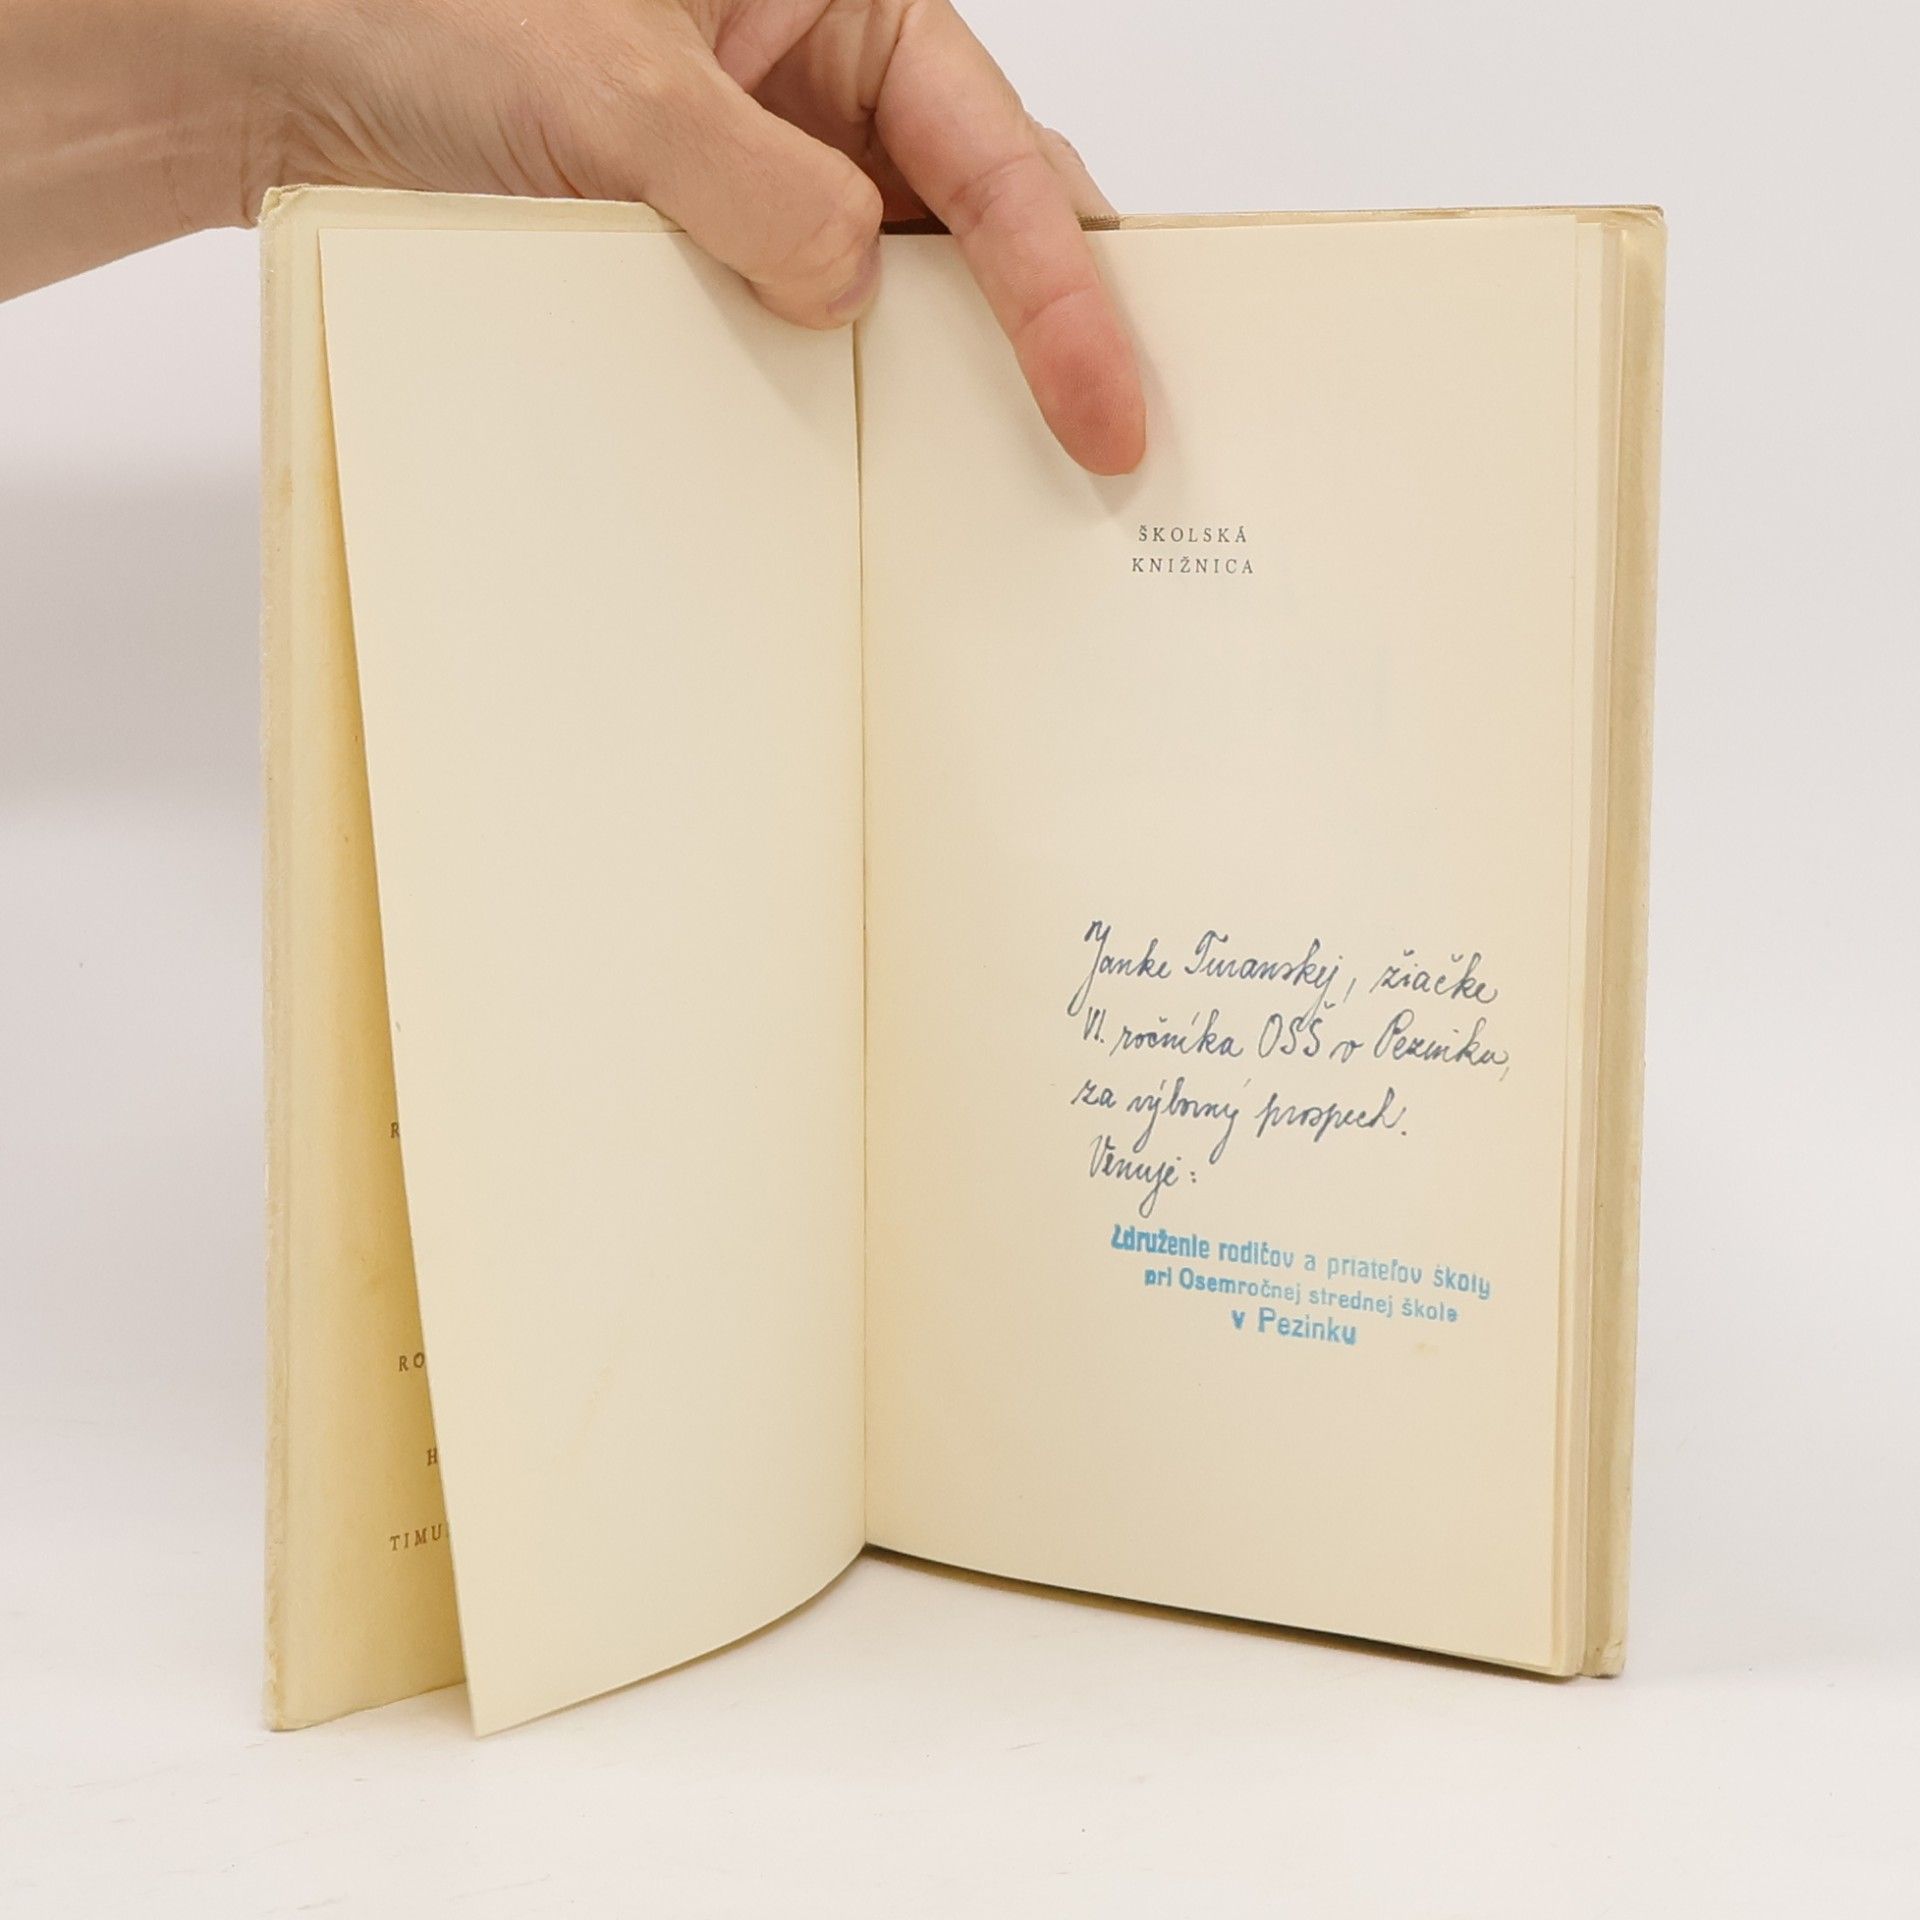 ŠKOLSKÁ
KNIŽNICA
Janke Turanskej, žiačke
VI. ročníka OSŠ v Pezinku,
za výborný prospech.
Venuje:
Združenie rodičov a priateľov školy
pri Osemročnej strednej škole
v Pezinku